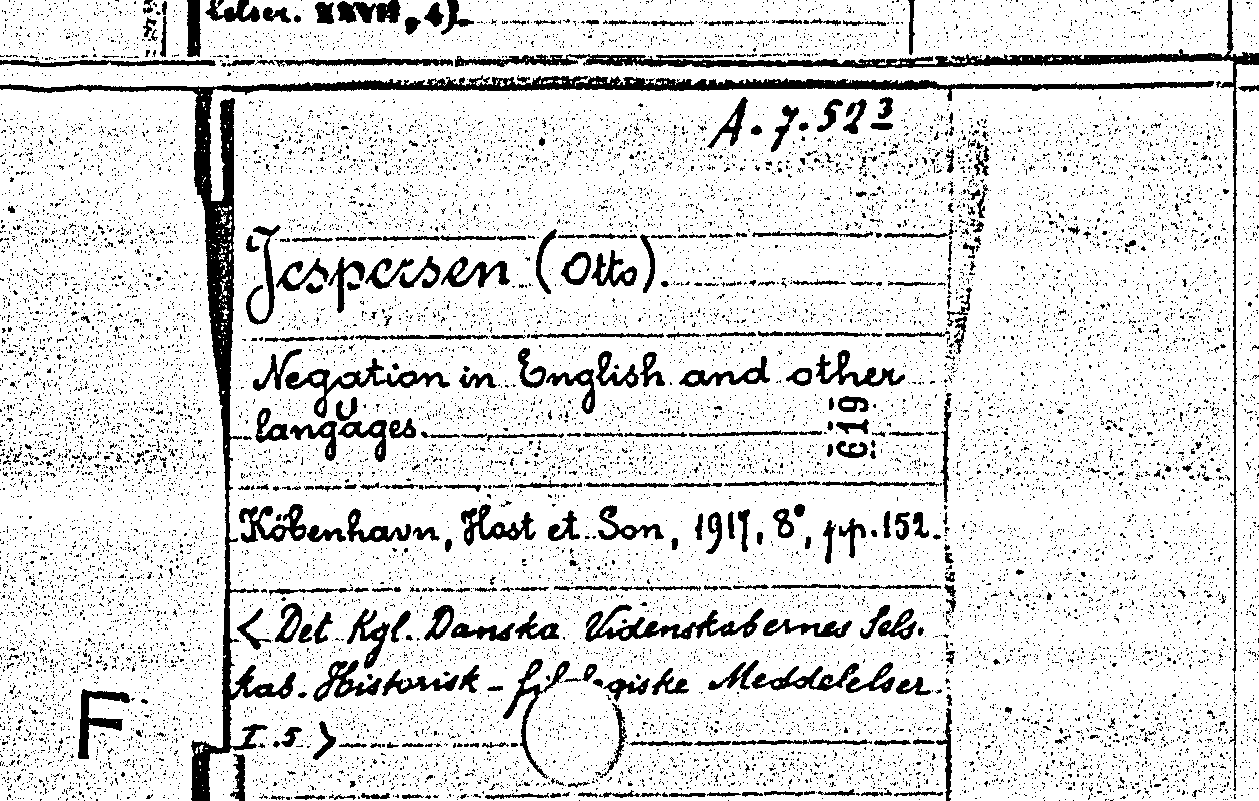 lelser. XXVII, 4).
A.7.523
Jespersen (Otto).
Negation in English and other
langŭages.
619
Köbenhavn, Host et Son, 1917, 8°, pp. 152.
< Det Kgl. Danska Videnskabernes Sels.
kab. Historisk - filologiske Meddelelser
I. 5 >
F